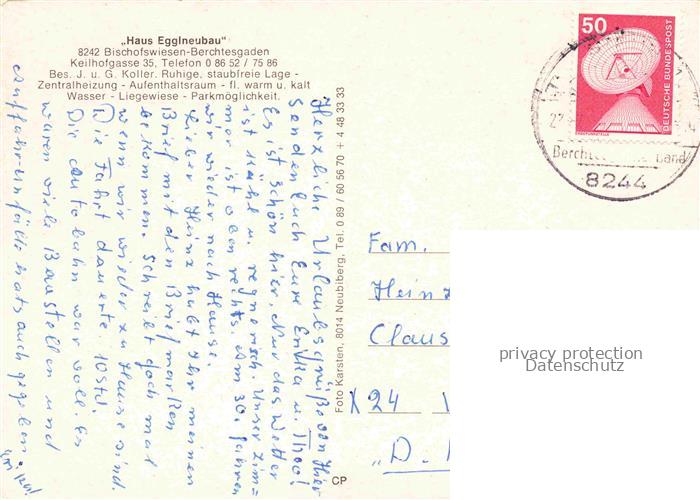 „Haus Egglneubau"
8242 Bischofswiesen-Berchtesgaden
Keilhofgasse 35, Telefon 0 86 52 / 75 86
Bes. J. u. G. Koller. Ruhige, staubfreie Lage -
Zentralheizung - Aufenthaltsraum - fl. warm u. kalt
Wasser - Liegewiese - Parkmöglichkeit.
Herzliche Urlaubsgrüße von hier
senden Euch Eure Erika u. Theo!
Es ist schön hier. Nur das Wetter
ist kühl u. regnerisch. Unser Zim=
mer ist oben rechts. Am 30. fahren
wir wieder nach Hause.
Lieber Heinz habt Ihr meinen
Brief mit den Briefmarken
bekommen. Schreibt doch mal
wenn wir wieder zu Hause sind.
Die Fahrt dauerte 10 Std.
Die Autobahn war voll. Es
waren viele Baustellen und
Auffahrunfälle hats auch gegeben.
Foto Karsten, 8014 Neubiberg, Tel. 0 89 / 60 56 70 + 4 48 33 33
CP
50
DEUTSCHE BUNDESPOST
8244
Fam.
Heinz
Claus
X24
„D.
privacy protection
Datenschutz